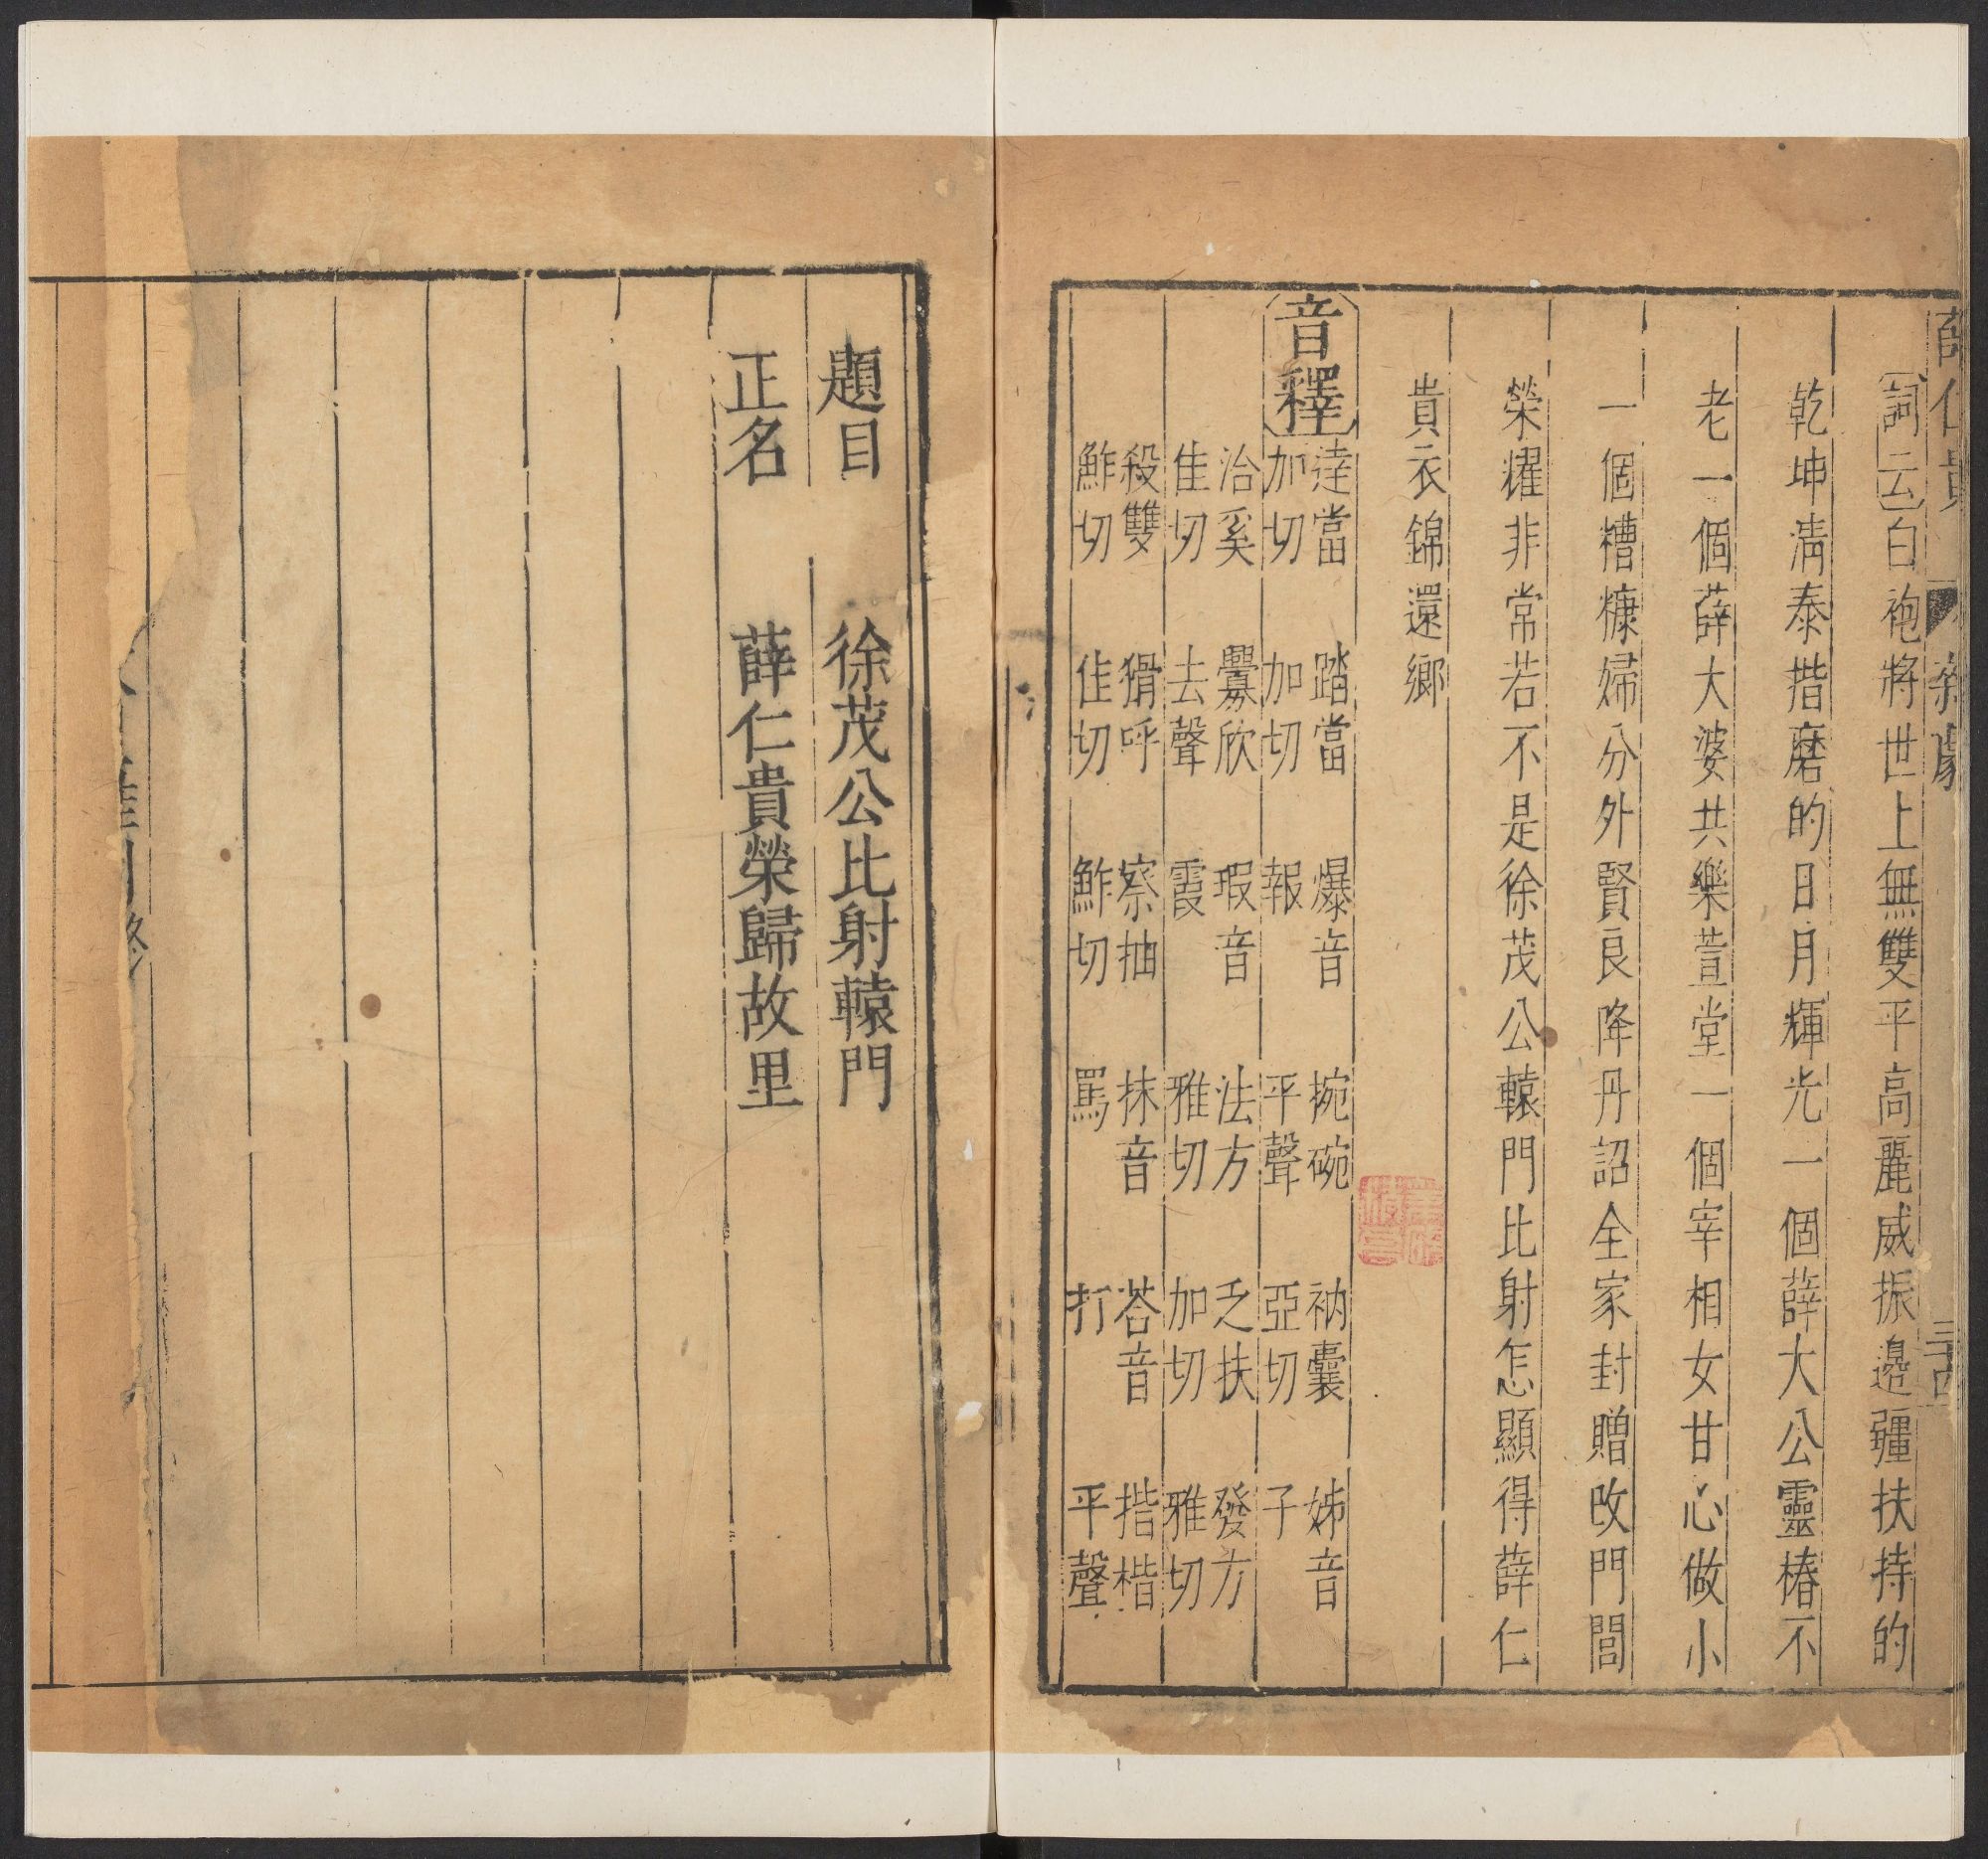 薛仁貴 雜劇 三四
詞云白袍將世上無雙平高麗威振邊疆扶持的
乾坤淸泰揩磨的日月輝光一個薛大公靈椿不
老一個薛大婆共樂萱堂一個宰相女甘心做小
一個糟糠婦分外賢良降丹詔全家封贈改門閭
榮耀非常若不是徐茂公轅門比射怎顯得薛仁
貴衣錦還鄉
音釋
達當加切 踏當加切 爆音報 捥碗平聲 衲囊亞切 姊音子
洽奚佳切 釁欣去聲 瑕音霞 法方雅切 乏扶加切 發方雅切
殺雙鮓切 猾呼佳切 察抽鮓切 抹音罵 荅音打 揩楷平聲
題目 徐茂公比射轅門
正名 薛仁貴榮歸故里
終